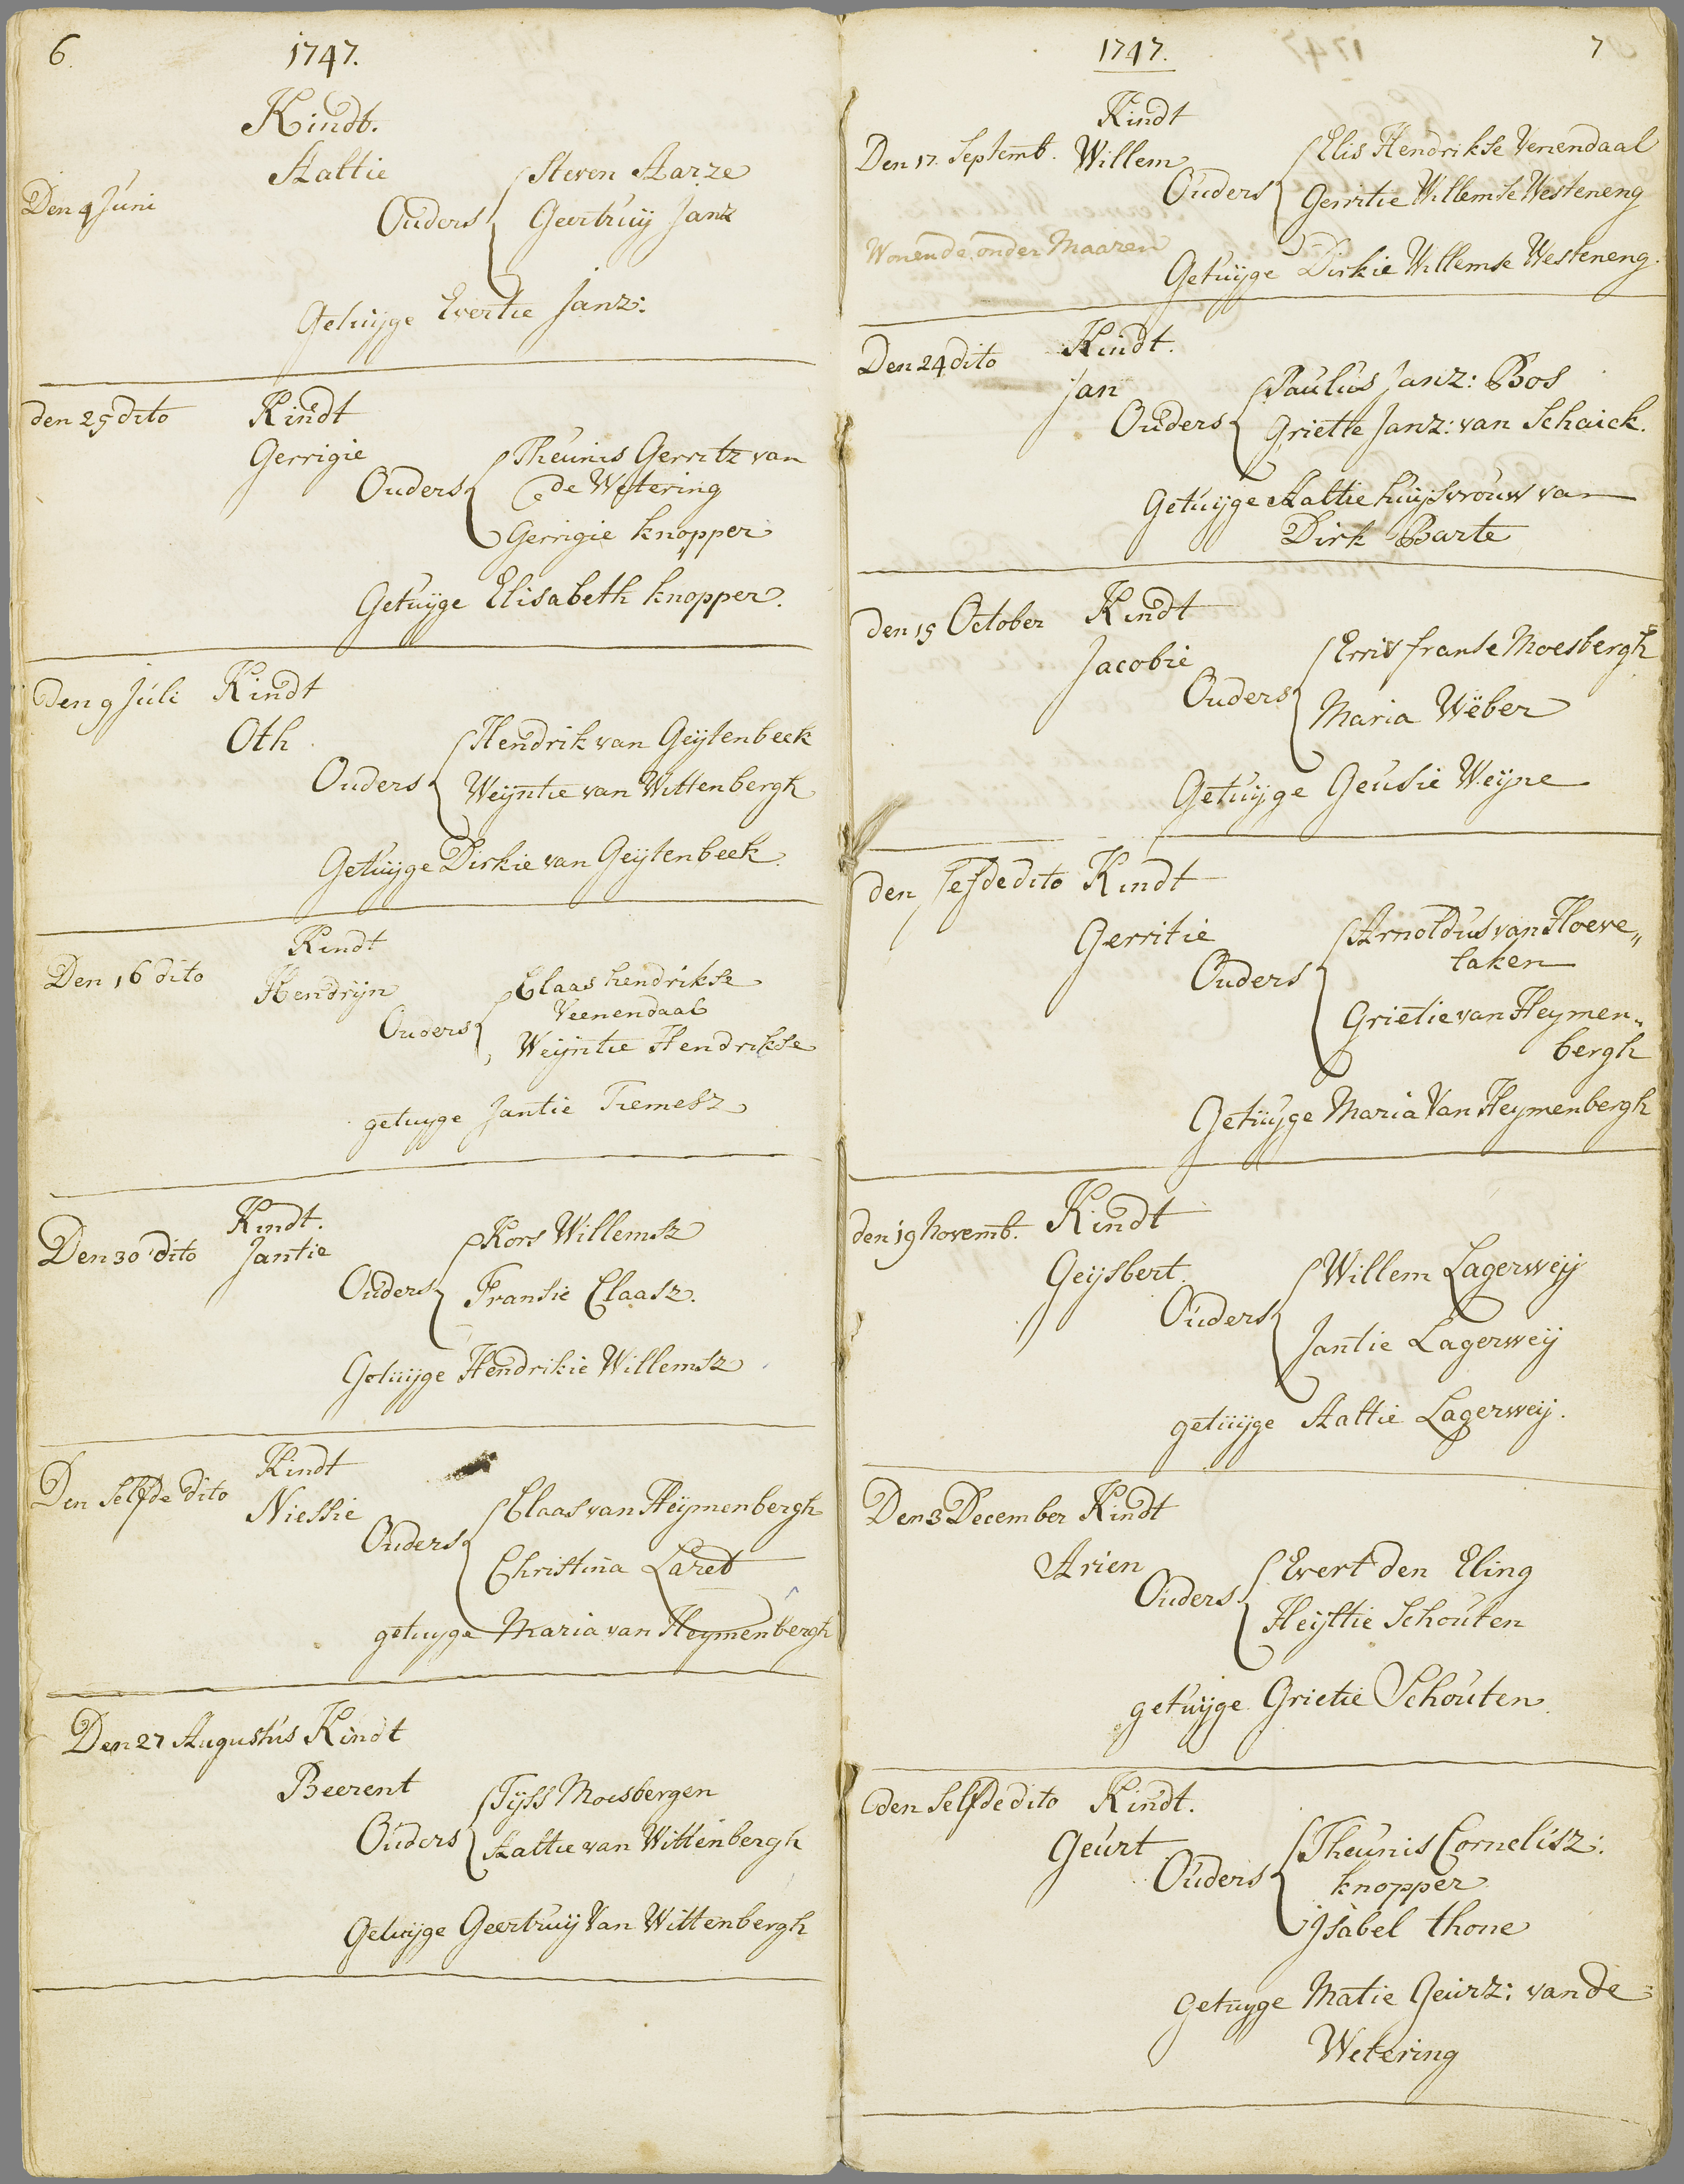 6.
1747.
Kindt.
Aaltie
Den 4 Juni
Ouders
Steven Aarze
Geertruij Janz
Getuijge Evertie Janz:
den 25 dito
Kindt
Gerrigie
Ouders
Theunis Gerritz van
de Wetering
Gerrigie knopper
Getuijge Elisabeth knopper.
Den 9 Juli Kindt
Oth
Ouders
Hendrik van Geijtenbeek
Weijntie van Wittenbergh
Getuijge Dirkie van Geijtenbeek
Kindt
Den 16 dito
Hendrijn
Ouders
Claas hendrikse
Veenendaal
Weijntie Hendrikse
getuyge Jantie Tiemesz
Kindt.
Den 30 dito Jantie
Ouders
Kors Willemsz
Fransie Claasz.
Getuijge Hendrikie Willemsz
Kindt
Den selfde dito
Niessie
Ouders
Claas van Heijmenbergh
Christina Laret
getuyge Maria van Heymenbergh
Den 27 Augustus Kindt
Beerent
Ouders
Tijss Moesbergen
Aaltie van Wittenbergh
Getuijge Geertruij Van Wittenbergh
1747.
7
Kindt
Den 17. Septemb. Willem
Ouders
Elis Hendrikse Venendaal
Gerritie Willemse Westeneng
Wonende onder Maaren
Getuijge Dirkie Willemse Westeneng.
Den 24 dito
Kindt.
Jan
Ouders
Paulus Janz: Bos
Grietie Janz: van Schaick.
Getuijge Aaltie huijsvrouw van
Dirk Barte
den 15 October Kindt
Jacobie
Ouders
franse Moesbergh
Maria Wëber
Getuijge Geusie Weijne
den selfde dito Kindt
Gerritie
Ouders
Arnoldus van Hoeve„
laken
Grietie van Heymen„
bergh
Getuijge Maria Van Heymenbergh
den 19 Novemb. Kindt
Geijsbert
Ouders
Willem Lagerweij
Jantie Lagerweij
getuijge Aaltie Lagerweij.
Den 3 December Kindt
Arien
Ouders
Evert den Eling
Heijltie Schouten
getuijge Grietie Schouten.
den selfde dito Kindt.
Geurt
Ouders
Theunis Cornelisz:
knopper
Ysabel thone
getuyge Matie Geurz: van de
Wetering